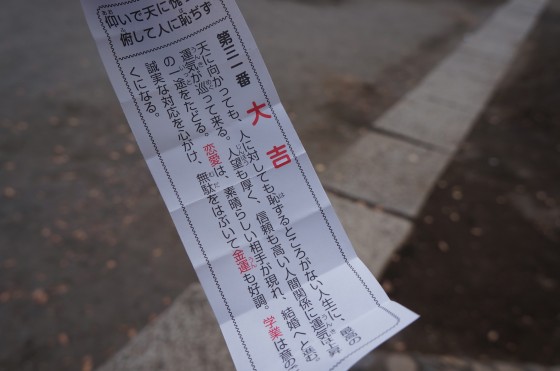 仰いで天に愧
俯して人に恥ぢず
第三一番
大吉
天に向かっても、人に対しても恥ずるところがない人生に、
運気が巡って来る。人望も厚く、信頼も高い人間関係に運気は上昇
の一途をたどる。恋愛は、素晴らしい相手が現れ、結婚へと進む。
誠実な対応を心がけ、無駄をはぶいて金運も好調。学業は意の
くになる。